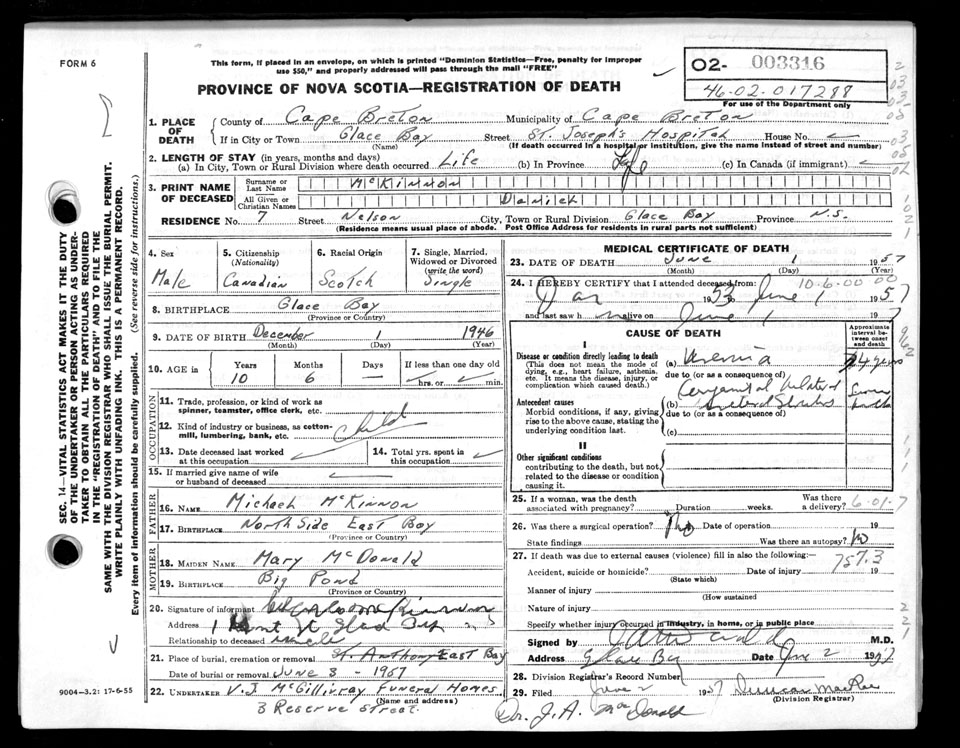 FORM 6
This form, if placed in an envelope, on which is printed "Dominion Statistics—Free, penalty for improper
use $50," and properly addressed will pass through the mail "FREE"
PROVINCE OF NOVA SCOTIA—REGISTRATION OF DEATH
02- 003316
46-02-017288
For use of the Department only
1. PLACE OF DEATH
County of Cape Breton Municipality of Cape Breton
If in City or Town Glace Bay Street St. Joseph's Hospital House No.
(Name) (If death occurred in a hospital or institution, give the name instead of street and number)
2. LENGTH OF STAY (in years, months and days)
(a) In City, Town or Rural Division where death occurred Life (b) In Province Life (c) In Canada (if immigrant)
3. PRINT NAME OF DECEASED
Surname or Last Name McKinnon
All Given or Christian Names Daniel
RESIDENCE No. 7 Street Nelson City, Town or Rural Division Glace Bay Province N.S.
(Residence means usual place of abode. Post Office Address for residents in rural parts not sufficient)
4. Sex
Male
5. Citizenship (Nationality)
Canadian
6. Racial Origin
Scotch
7. Single, Married, Widowed or Divorced (write the word)
Single
8. BIRTHPLACE Glace Bay
(Province or Country)
9. DATE OF BIRTH December 1 1946
(Month) (Day) (Year)
10. AGE in Years Months Days If less than one day old
10 6 hrs. or min.
OCCUPATION
11. Trade, profession, or kind of work as
spinner, teamster, office clerk, etc.
12. Kind of industry or business, as cotton-
mill, lumbering, bank, etc. Child
13. Date deceased last worked
at this occupation
14. Total yrs. spent in
this occupation
15. If married give name of wife
or husband of deceased
FATHER
16. NAME Michael McKinnon
17. BIRTHPLACE North Side East Bay
(Province or Country)
MOTHER
18. MAIDEN NAME Mary McDonald
19. BIRTHPLACE Big Pond
(Province or Country)
20. Signature of informant
Address
Relationship to deceased
21. Place of burial, cremation or removal St. Anthony East Bay
Date of burial June 3 - 1957
22. UNDERTAKER V.J. McGillivray Funeral Homes
(Name and address)
3 Reserve Street.
9004—3.2: 17-6-55
MEDICAL CERTIFICATE OF DEATH
23. DATE OF DEATH June 1 1957
(Month) (Day) (Year)
10-6-00 00
24. I HEREBY CERTIFY that I attended deceased from:
Jan 1953 June 1 1957
and last saw h m alive on June 1 19 7
CAUSE OF DEATH
Approximate interval between onset and death
I
Disease or condition directly leading to death
(This does not mean the mode of
dying, e.g., heart failure, asthma,
etc. It means the disease, injury, or
complication which caused death.)
(a) Uremia 4 years
due to (or as a consequence of)
Antecedent causes
Morbid conditions, if any, giving
rise to the above cause, stating the
underlying condition last.
(b) Congenital Bilateral
due to (or as a consequence of)
(c)
II
Other significant conditions
contributing to the death, but not
related to the disease or condition
causing it.
25. If a woman, was the death
associated with pregnancy? Duration weeks. Was there a delivery? 6-01-7
26. Was there a surgical operation? No Date of operation 19
State findings Was there an autopsy? No
27. If death was due to external causes (violence) fill in also the following: 757.3
Accident, suicide or homicide? Date of injury 19
(State which)
Manner of injury
(How sustained
Nature of injury
Specify whether injury occurred in industry, in home, or in public place
Signed by M.D.
Address Glace Bay Date June 2 1957
28. Division Registrar's Record Number
29. Filed June 2 1957 Duncan MacRae
(Division Registrar)
Dr. J.A. MacDonald
SEC. 14—VITAL STATISTICS ACT MAKES IT THE DUTY
OF THE UNDERTAKER OR PERSON ACTING AS UNDER-
TAKER TO OBTAIN ALL THE PARTICULARS REQUIRED
IN THE "REGISTRATION OF DEATH" AND TO FILE THE
SAME WITH THE DIVISION REGISTRAR WHO SHALL ISSUE THE BURIAL PERMIT.
WRITE PLAINLY WITH UNFADING INK. THIS IS A PERMANENT RECORD.
Every item of information should be carefully supplied. (See reverse side for instructions.)